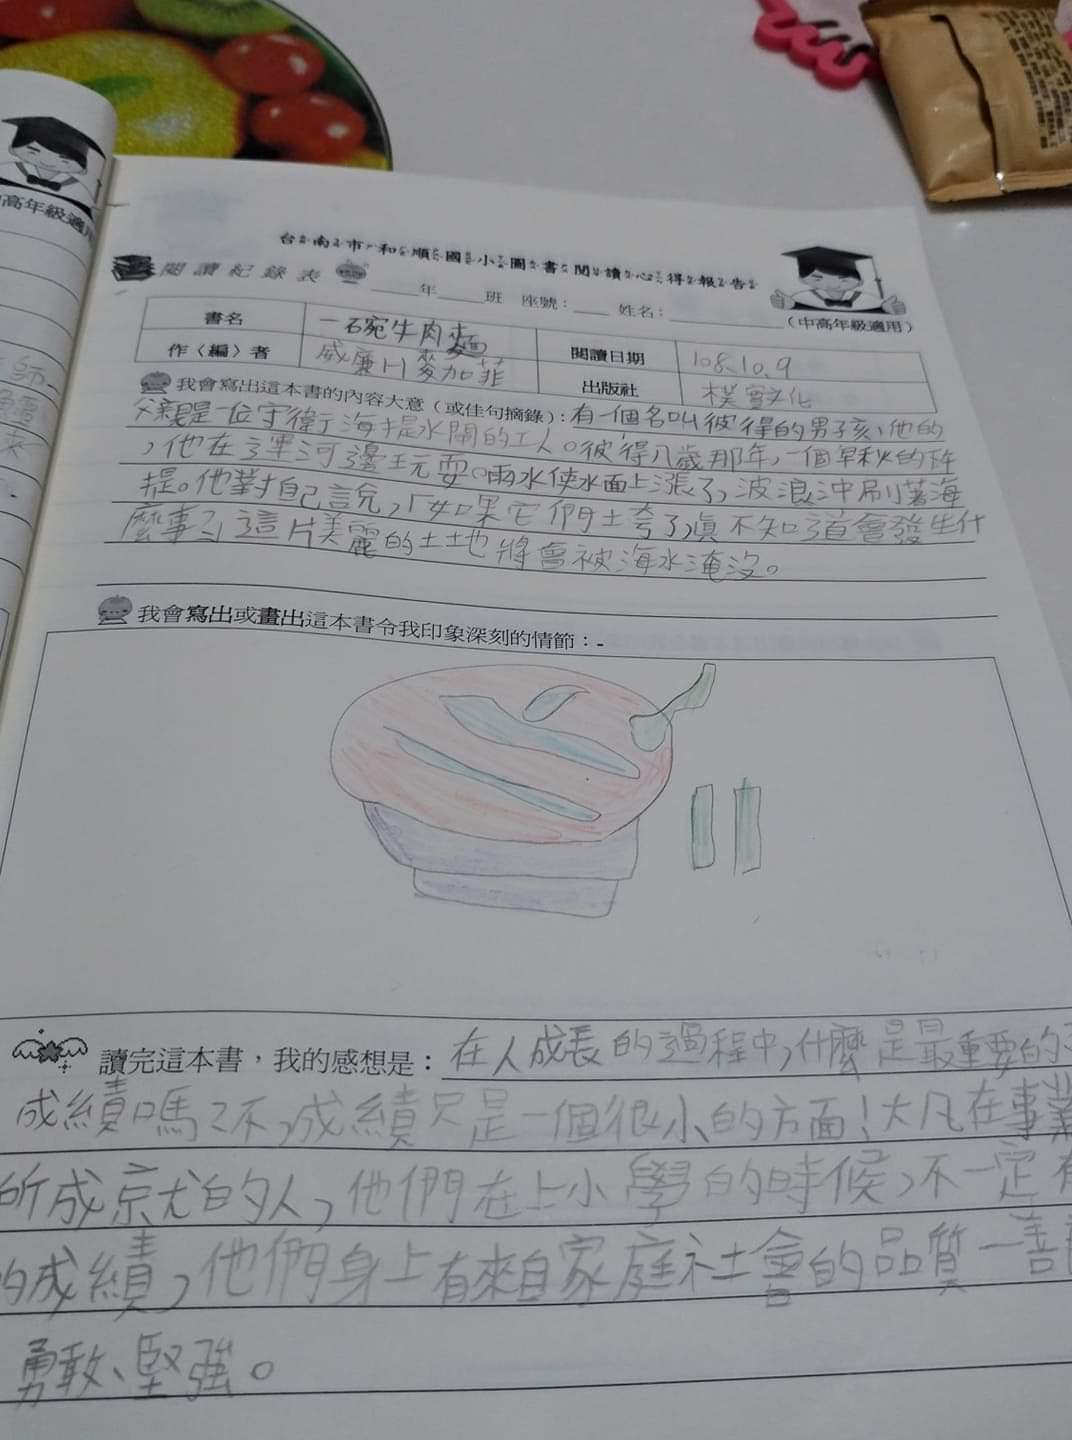 高年級適用
台南市和順國小圖書閱讀心得報告
閱讀紀錄表
____年____班 座號：____ 姓名：__________
（中高年級適用）
書名 一碗牛肉麵 閱讀日期 108.10.9
作〈編〉者 威廉H麥加菲 出版社 樸實文化
我會寫出這本書的內容大意（或佳句摘錄）：有一個名叫彼得的男孩、他的
父親是一位守衛海堤水閘的工人。彼得八歲那年，一個早秋的
，他在運河邊玩耍。雨水使水面上漲了，波浪沖刷著海
堤。他對自己說，「如果它們土夸了，真不知道會發生什
麼事？」這片美麗的土地將會被海水淹沒。
我會寫出或畫出這本書令我印象深刻的情節：-
讀完這本書，我的感想是：在人成長的過程中，什麼是最重要的
成績嗎？不，成績只是一個很小的方面！大凡在事業
所成就的人，他們在上小學的時候，不一定有
的成績，他們身上有來自家庭社會的品質－善
勇敢、堅強。